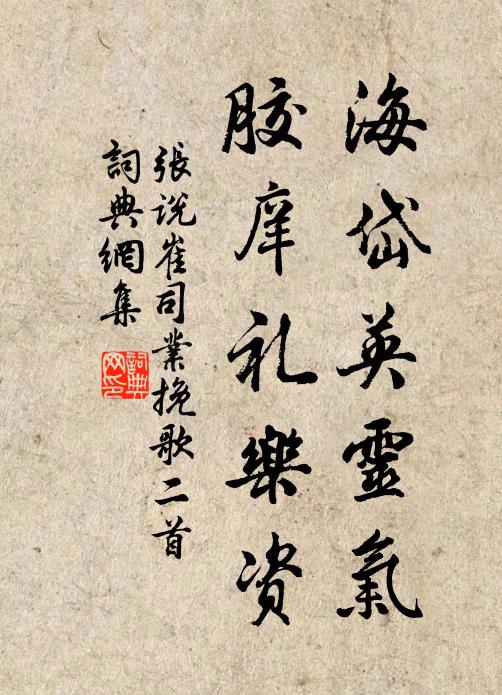 海岱英靈氣
胶庠礼樂资
張说崔司業挽歌二首
詞典網集
詞典网印